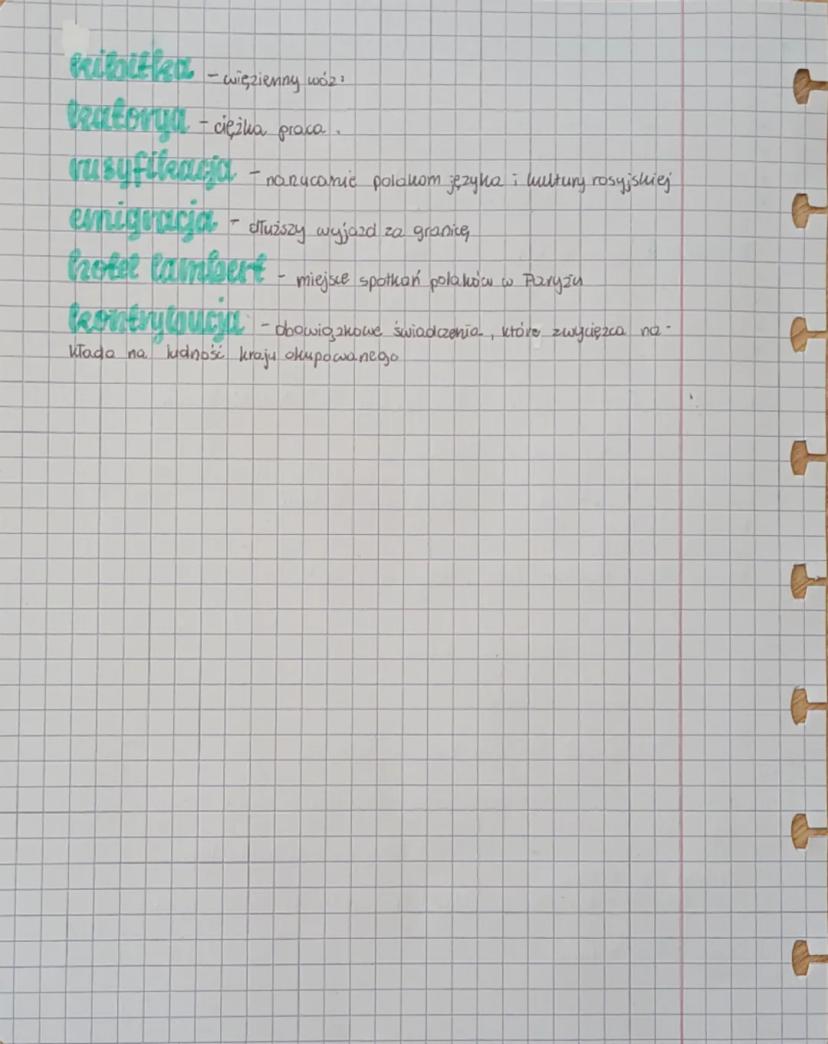 kibitka - więzienny wóz.
katorga - ciężka praca.
rusyfikacja - narzucanie polakom języka i kultury rosyjskiej
emigracja - dłuższy wyjazd za granicę
hotel lambert - miejsce spotkań polaków w Paryżu
kontrybucja - obowiązkowe świadczenia, które zwycięzca na-
kłada na ludność kraju okupowanego